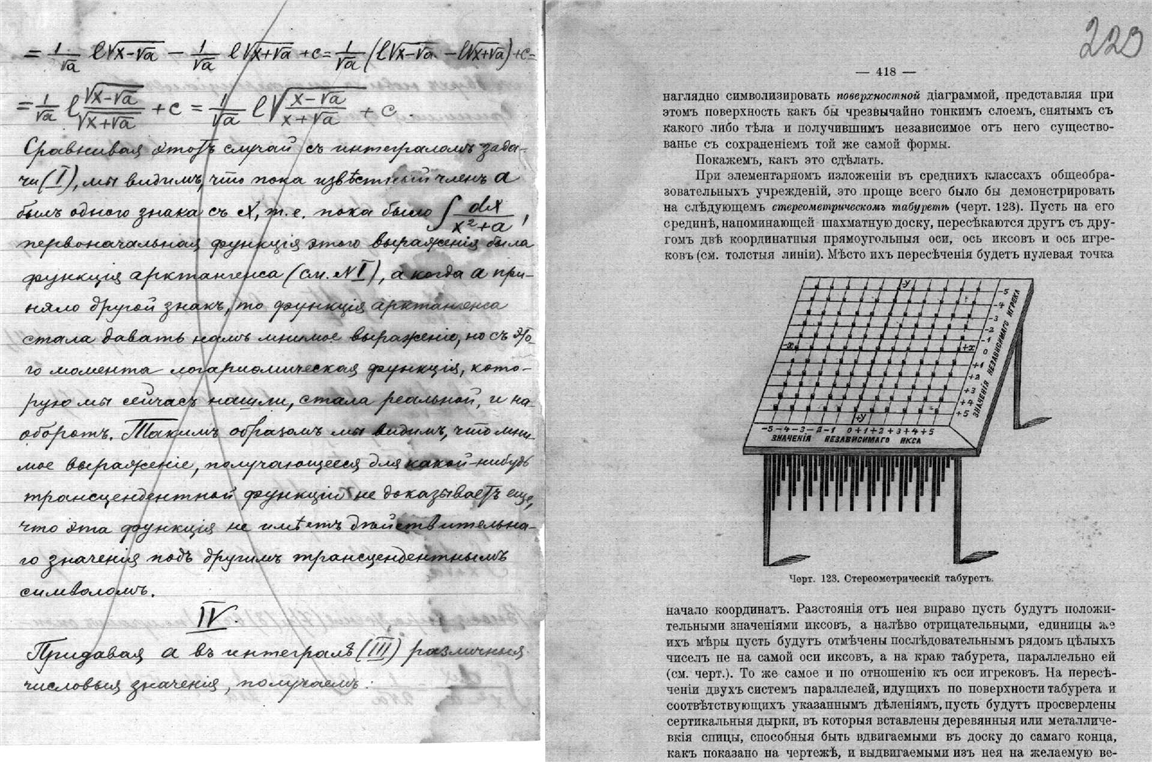 = 1/√a l√x-√a − 1/√a l√x+√a + c = 1/√a (l√x-√a − l√x+√a) + c =
= 1/√a l √x-√a/√x+√a + c = 1/√a l √x-√a/x+√a + c
Сравнивая этотъ случай съ интеграломъ зада-
чи (I), мы видимъ, что пока извѣстный членъ a
былъ одного знака съ x, т.е. пока было ∫ dx/x²+a,
первоначальная функція этого выраженія была
функція арктангенса (см. №I), а когда a при-
няло другой знакъ, то функція арктангенса
стала давать намъ мнимое выраженіе, но съ это-
го момента логариѳмическая функція, кото-
рую мы сейчасъ нашли, стала реальной, и на-
оборотъ. Такимъ образомъ мы видимъ, что мни-
мое выраженіе, получающееся для какой-нибудь
трансцендентной функціи не доказываетъ еще,
что эта функція не имѣетъ дѣйствительна-
го значенія подъ другимъ трансцендентнымъ
символомъ.
IV.
Придавая a въ интегралѣ (III) различныя
числовыя значенія, получаемъ:
223
— 418 —
наглядно символизировать поверхностной діаграммой, представляя при
этомъ поверхность какъ бы чрезвычайно тонкимъ слоемъ, снятымъ съ
какого либо тѣла и получившимъ независимое отъ него существо-
ванье съ сохраненіемъ той же самой формы.
Покажемъ, какъ это сдѣлать.
При элементарномъ изложеніи въ среднихъ классахъ общеобра-
зовательныхъ учрежденій, это проще всего было бы демонстрировать
на слѣдующемъ стереометрическомъ табуретѣ (черт. 123). Пусть на его
срединѣ, напоминающей шахматную доску, пересѣкаются другъ съ дру-
гомъ двѣ координатныя прямоугольныя оси, ось иксовъ и ось игре-
ковъ (см. толстыя линіи). Мѣсто ихъ пересѣченія будетъ нулевая точка
-y
-x
+x
+y
-5
-4
-3
-2
-1
0
+1
+2
+3
+4
+5
ЗНАЧЕНІЯ НЕЗАВИСИМАГО ИГРЕКА
-5 -4 -3 -2 -1 0 +1 +2 +3 +4 +5
ЗНАЧЕНІЯ НЕЗАВИСИМАГО ИКСА
Черт. 123. Стереометрическій табуретъ.
начало координатъ. Разстоянія отъ нея вправо пусть будутъ положи-
тельными значеніями иксовъ, а налѣво отрицательными, единицы же
ихъ мѣры пусть будутъ отмѣчены послѣдовательнымъ рядомъ цѣлыхъ
чиселъ не на самой оси иксовъ, а на краю табурета, параллельно ей
(см. черт.). То же самое и по отношенію къ оси игрековъ. На пересѣ-
ченіи двухъ системъ параллелей, идущихъ по поверхности табурета и
соотвѣтствующихъ указаннымъ дѣленіямъ, пусть будутъ просверлены
сертикальныя дырки, въ которыя вставлены деревянныя или металличе-
вкія спицы, способныя быть вдвигаемыми въ доску до самаго конца,
какъ показано на чертежѣ, и выдвигаемыми изъ нея на желаемую ве-